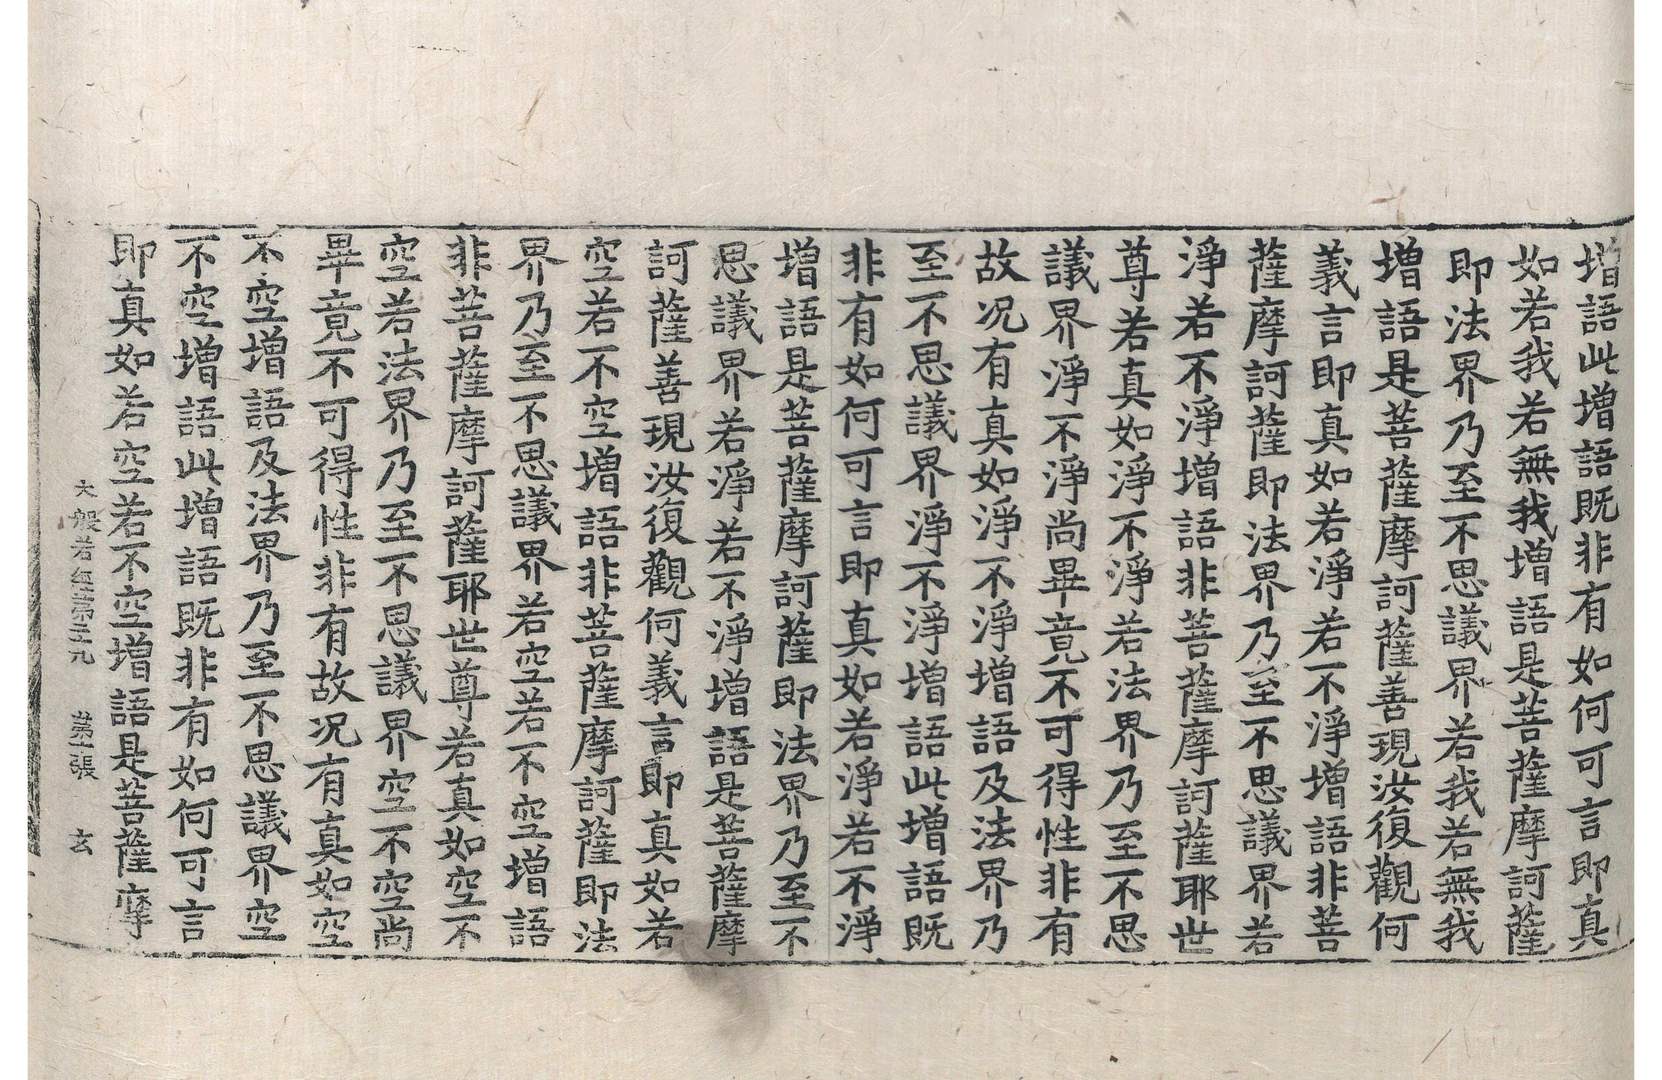 增語此增語既非有如何可言即真
如若我若無我增語是菩薩摩訶薩
即法界乃至不思議界若我若無我
增語是菩薩摩訶薩善現汝復觀何
義言即真如若淨若不淨增語非菩
薩摩訶薩即法界乃至不思議界若
淨若不淨增語非菩薩摩訶薩耶世
尊若真如淨不淨若法界乃至不思
議界淨不淨尚畢竟不可得性非有
故况有真如淨不淨增語及法界乃
至不思議界淨不淨增語此增語既
非有如何可言即真如若淨若不淨
增語是菩薩摩訶薩即法界乃至不
思議界若淨若不淨增語是菩薩摩
訶薩善現汝復觀何義言即真如若
空若不空增語非菩薩摩訶薩即法
界乃至不思議界若空若不空增語
非菩薩摩訶薩耶世尊若真如空不
空若法界乃至不思議界空不空尚
畢竟不可得性非有故况有真如空
不空增語及法界乃至不思議界空
不空增語此增語既非有如何可言
即真如若空若不空增語是菩薩摩
大般若經第 張 玄